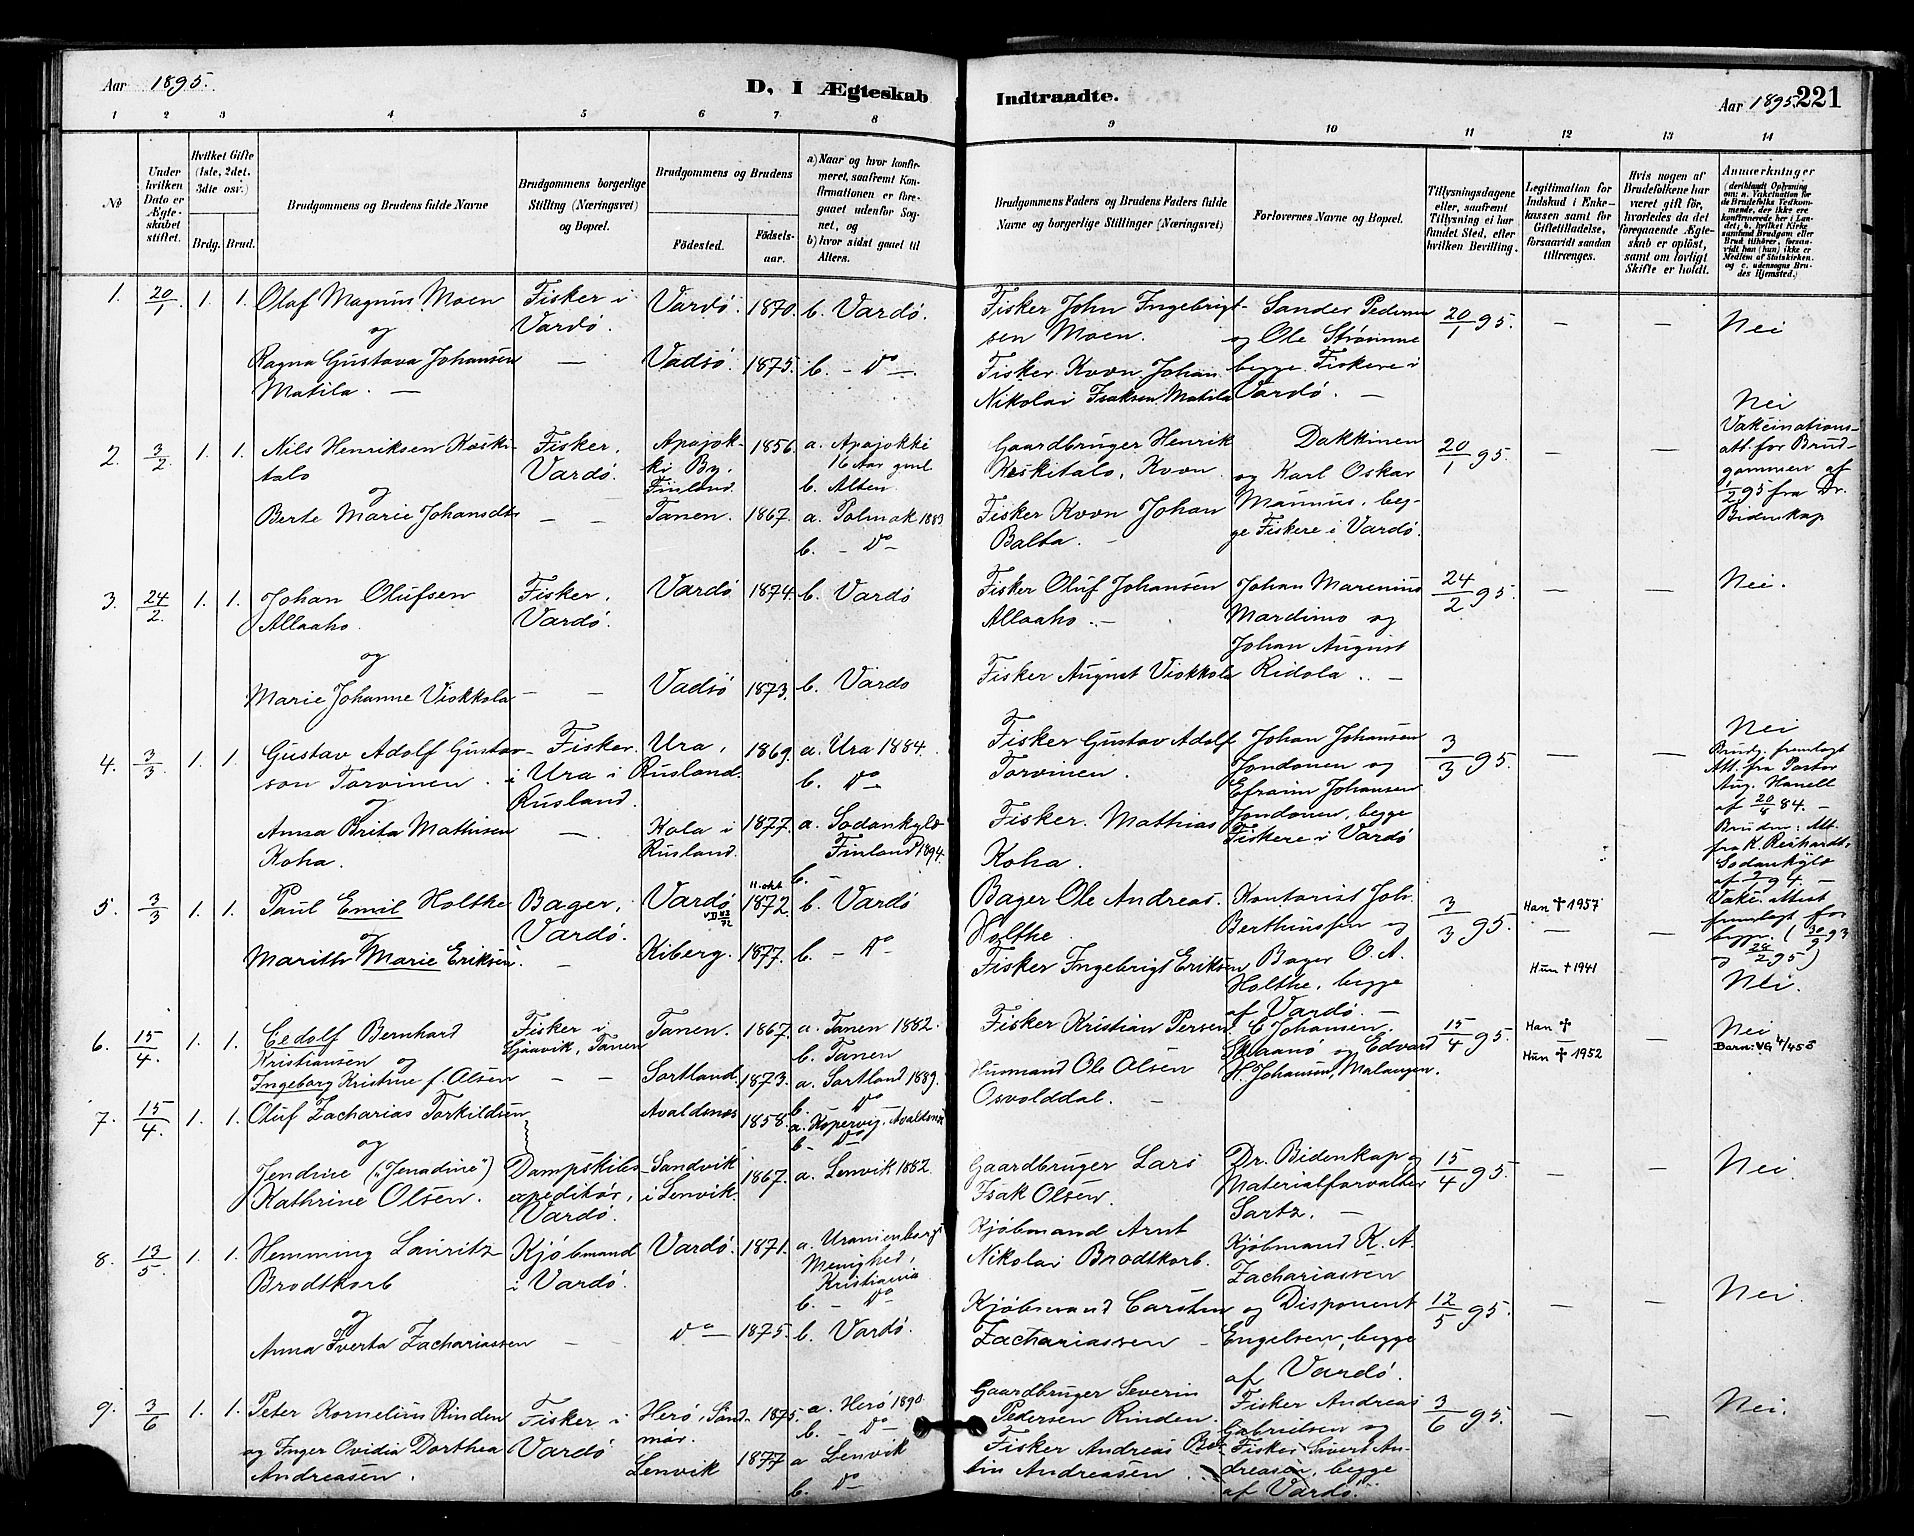 Aar 1895.
D, I Ægteskab Indtraadte.
Aar 1895. 221
1 2 3 4 5 6 7 8 9 10 11 12 13 14
No
Under hvilken Dato er Ægteskabet stiftet.
Hvilket Gifte (1ste, 2det, 3die osv.)
Brdg. Brud.
Brudgommens og Brudens fulde Navne
Brudgommens borgerlige Stilling (Næringsvei) og Bopæl.
Brudgommens og Brudens
Fødested.
Fødselsaar.
a) Naar og hvor konfirmeret, saafremt Konfirmationen er foregaaet udenfor Sognet, og
b) hvor sidst gaaet til Alters.
Brudgommens Faders og Brudens Faders fulde Navne og borgerlige Stillinger (Næringsvei)
Forlovernes Navne og Bopæl.
Tillysningsdagene eller, saafremt Tillysning ei har fundet Sted, efter hvilken Bevilling.
Legitimation for Indskud i Enkekassen samt for Giftetilladelse, forsaavidt saadan tiltrænges.
Hvis nogen af Brudefolkene har været gift før, hvorledes da det foregaaende Ægteskab er opløst, samt om lovligt Skifte er holdt.
Anmærkninger (deriblandt Oplysning om: a. Vakcination for de Brudefolks Vedkommende, der ikke ere konfirmerede her i Landet; b. hvilket Kirkesamfund Brudgom eller Brud tilhører, forsaavidt han (hun) ikke er Medlem af Statskirken, og c. udensogns Brudes Hjemsted.)
1. 20/1 1. 1. Olaf Magnus Moen
og
Ragna Gustava Johansen
Matila. —
Fisker i
Vardö.
—
Vardö. 1870. b. Vardö.
Vadsö. 1875. b. — Do —
Fisker John Ingebrigt-
sen Moen.
Fisker Kvæn Johan
Nikolai Isaksen Matila
Sander Pedersen
og Ole Strömme
begge Fiskere i
Vardö. —
20/1 95. — — Nei
2. 3/2 1. 1. Nils Henriksen Keski-
talo
og
Berte Marie Johansdtr
Fisker,
Vardö.
— —
Apajok-
ki By,
Finland. 1856.
Tanen. 1867.
a. Apajokki
16 Aar gml.
b. Alten
a. Polmak 1883
b. — Do —
Gaardbruger Henrik
Keskitalo, Kvæn.
Fisker Kvæn Johan
Balta. —
Dakkinen
og Karl Oskar
Maunus, beg-
ge Fiskere i Vardö.
20/1 95. — —
Nei
Vakcinations-
att. for Brud-
gommen af
1/2 95 fra Dr.
Bidenkap
3. 24/2 1. 1. Johan Olufsen
Allaaho.
og
Marie Johanne Viokkola
Fisker,
Vardö.
— —
Vardö 1874. b. Vardö
Vadsö 1873. b. Vardö
Fisker Oluf Johansen
Allaaho. —
Fisker August Viokkola
Johan Marenius
Mardimo og
Johan August
Ridola. —
24/2 95. — — Nei.
4. 3/3 1. 1. Gustav Adolf Gustav-
son Torvinen.
og
Anna Brita Mathisen
Koha.
Fisker.
i Ura i
Rusland.
—
Ura,
Rusland. 1869.
Kola i
Rusland. 1877.
a. Ura 1884.
b. Do —
a. Sodankylæ
Finland 1894.
b. —
Fisker Gustav Adolf
Torvinen.
Fisker. Mathias
Koha.
Johan Johansen
Jondonen og
Efraim Johansen
Jondonen, begge
Fiskere i Vardö
3/3 95. — —
Nei
Brudg. fremlagt
Att. fra Pastor
Aug. Hanell
af 20/4 84. —
Bruden: Att.
fra K. Reihardt,
Sodankylæ
af 94 —
Vakc. attest
fremlagt for
begge. (30/9 93
og 28/2 95)
5. 3/3 1. 1. Paul Emil Holthe
og
Marith Marie Eriksen.
Bager,
Vardö.
—
Vardö
Kiberg.
11. okt
1872.
1877.
b. Vardö
b. — Do —
Bager Ole Andreas
Holthe.
Fisker Ingebrigt Eriksen
Kontorist Joh.
Berthinssen og
Bager O. A.
Holthe, begge
af Vardö. —
3/3 95. Han † 1957
—
Hun † 1941
— Nei.
6. 15/4 1. 1. Cedolf Bernhard
Kristiansen og
Ingeborg Kristine f. Olsen
Fisker i
Sjaavik, Tanen
— —
Tanen. 1867.
Sortland. 1873.
a. Tanen 1882.
b. Tanen
a. Sortland 1889.
b. Do
Fisker Kristian Persen
Husmand Ole Olsen
Osvolddal. —
C. Johansen.
og Edvard
H. Johansen, Malangen.
15/4 95. Han †
—
Hun † 1952
— Nei
Barn: VG 4/458
7. 15/4 1. 1. Oluf Zacharias Torkildsen
og
Jendine ("Jenadine")
Kathrine Olsen.
Dampskibs-
expeditör,
Vardö.
Avaldsnes 1858.
Sandvik
i Lenvik. 1867.
a. Kopervig, Avaldsnes
b. Do
a. Lenvik 1882.
Gaardbruger Lars
Isak Olsen.
Dr. Bidenkap og
Materialforvalter
Sartz. —
15/4 95. — — Nei
8. 13/5 1. 1. Hemming Lauritz
Brodtkorb
og
Anna Iverta Zachariassen
Kjöbmand
i Vardö.
—
Vardö. 1871.
Do — 1875.
a. Uranienborgs
Menighed,
Kristiania
b. — Do
b. Vardö.
Kjöbmand Arnt
Nikolai Brodtkorb.
Kjöbmand Carsten
Zachariassen —
Kjöbmand K. A.
Zachariassen
og Disponent
Engelsen, begge
af Vardö.
12/5 95. — — Nei.
9. 3/6 1. 1. Peter Kornelius Rinden
og Inger Ovidia Dorthea
Andreasen.
Fisker i
Vardö
Herö, Sönd-
mör. 1875.
Lenvik 1877
a. Herö 1890
b. — Do —
a Lenvik
b. Do
Gaardbruger Severin
Pedersen Rinden.
Fisker Andreas
Andreasen.
Fisker Andreas
Gabrielsen og
Fisker Sivert An-
dreasen, begge
af Vardö.
3/6 95. — — Nei.